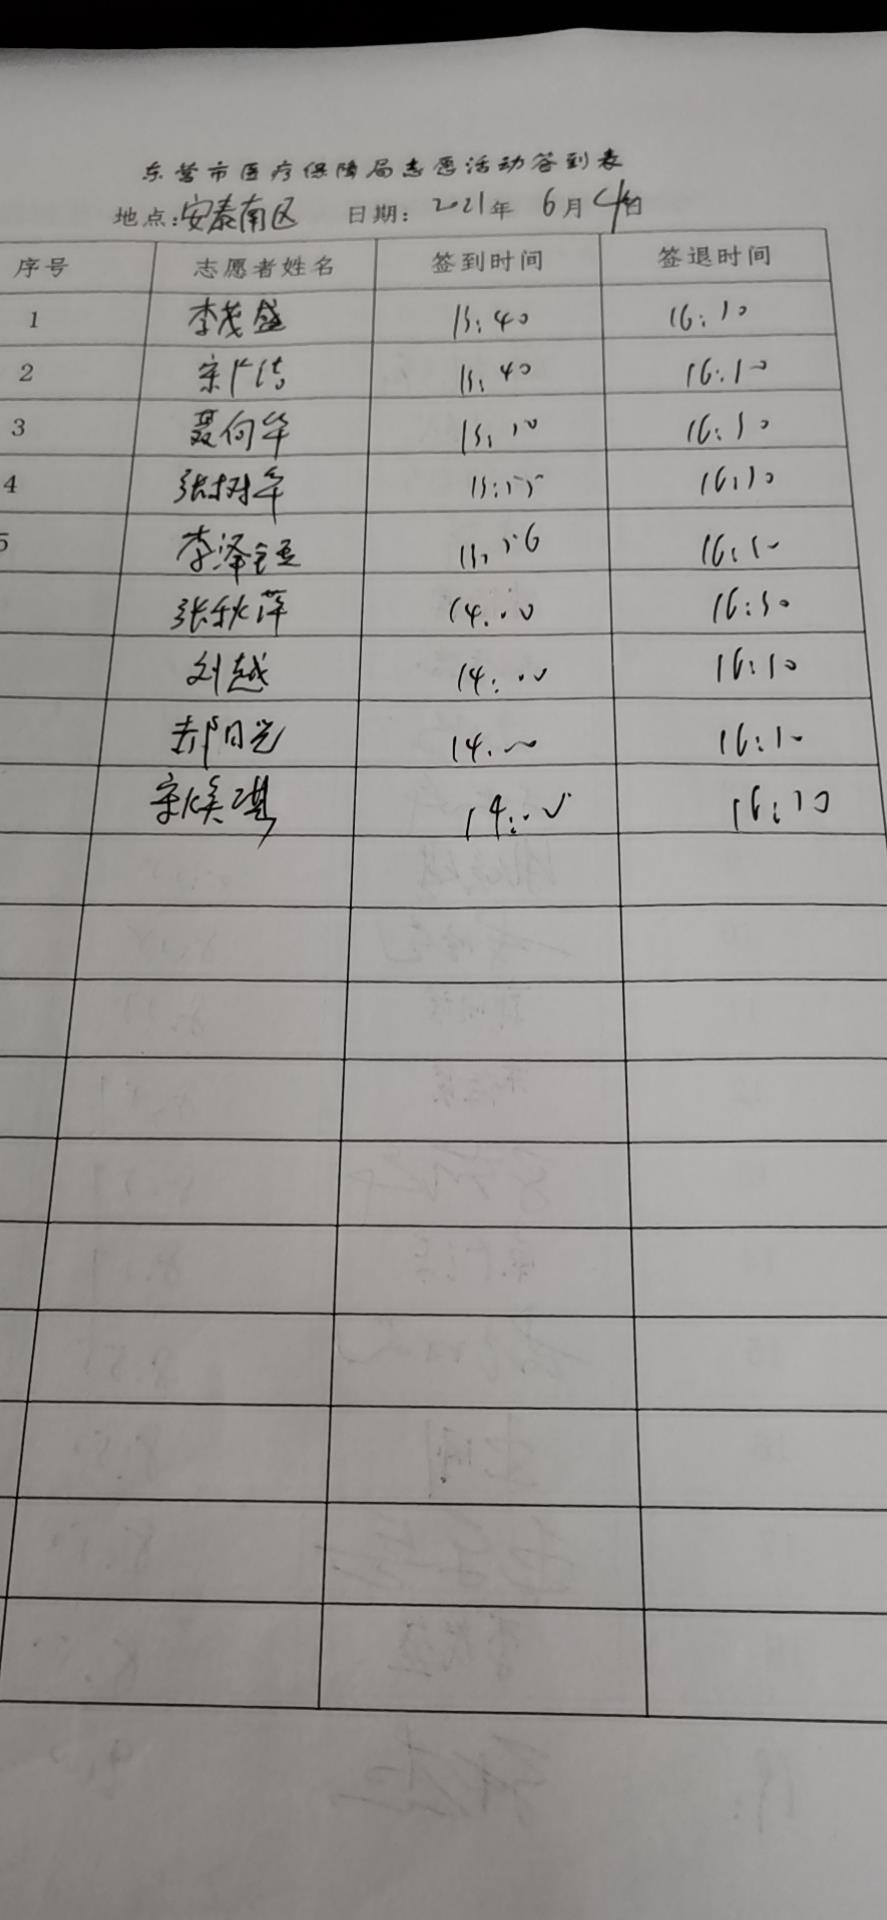 东营市医疗保障局志愿活动签到表
地点:安泰南区 日期: 2021年 6月4日
序号 志愿者姓名 签到时间 签退时间
1 李茂盛 13:40 16:10
2 宋 13:40 16:10
3 聂向华 16:30
4 张树军 13:55 16:10
5 李泽钰 13:56 16:10
张秋萍 14:00 16:30
刘越 14:00 16:10
郝阳光 14:00 16:10
宋焕琪 14:00 16:10